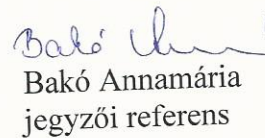 Bakó
Bakó Annamária
jegyzői referens